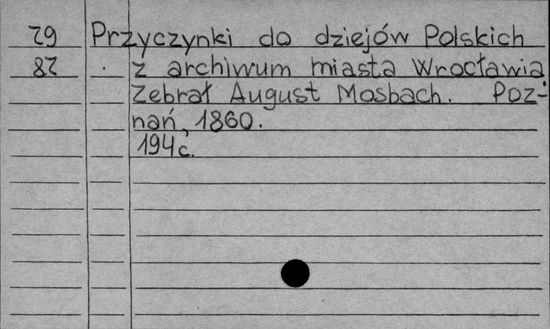 62 Przyczynki do dziejów Polskich
82 z archiwum miasta Wrocławia
Zebrał August Mosbach. Poz-
nań, 1860.
194c.